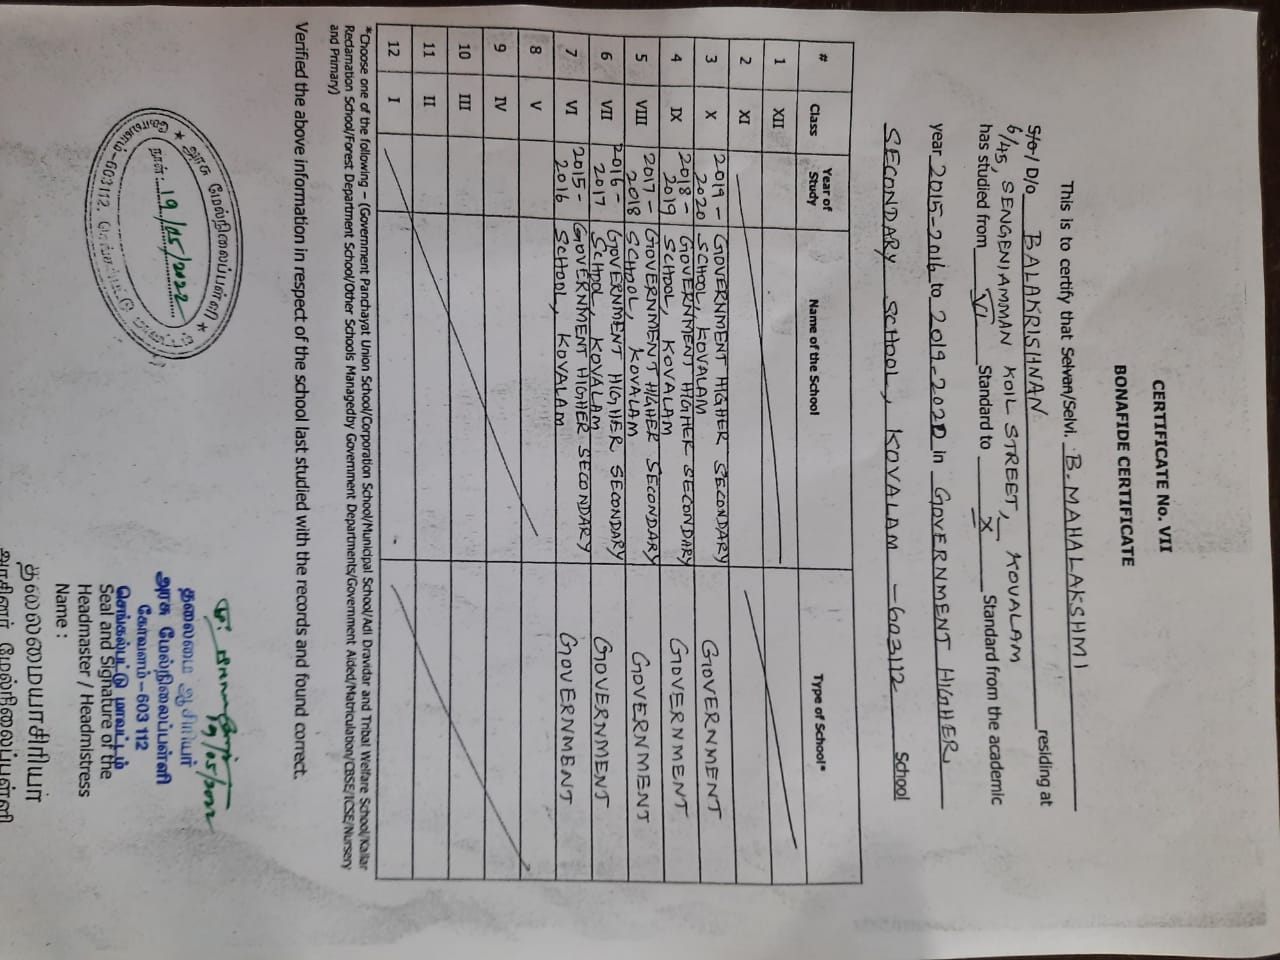 CERTIFICATE No. VII
BONAFIDE CERTIFICATE
This is to certify that Selvan/Selvi. B. MAHALAKSHMI
S/o / D/o BALAKRISHNAN residing at
6/45, SENGENIAMMAN KOIL STREET, KOVALAM
has studied from VI Standard to X Standard from the academic
year 2015-2016 to 2019-2020 in GOVERNMENT HIGHER
SECONDARY SCHOOL, KOVALAM -603112 School
# Class Year of Study Name of the School Type of School*
1 XII
2 XI
3 X 2019-2020 GOVERNMENT HIGHER SECONDARY SCHOOL, KOVALAM GOVERNMENT
4 IX 2018-2019 GOVERNMENT HIGHER SECONDARY SCHOOL, KOVALAM GOVERNMENT
5 VIII 2017-2018 GOVERNMENT HIGHER SECONDARY SCHOOL, KOVALAM GOVERNMENT
6 VII 2016-2017 GOVERNMENT HIGHER SECONDARY SCHOOL, KOVALAM GOVERNMENT
7 VI 2015-2016 GOVERNMENT HIGHER SECONDARY SCHOOL, KOVALAM GOVERNMENT
8 V
9 IV
10 III
11 II
12 I
*Choose one of the following – (Government Panchayat Union School/Corporation School/Municipal School/Adi Dravidar and Tribal Welfare School/Kallar
Reclamation School/Forest Department School/Other Schools Managedby Government Departments/Government Aided/Matriculation/CBSE/ICSE/Nursery
and Primary)
Verified the above information in respect of the school last studied with the records and found correct.
★ அரசு மேல்நிலைப்பள்ளி ★
நாள்: 19/05/2022
கோவளம்-603112.
19/05/2022
தலைமை ஆசிரியர்
அரசு மேல்நிலைப்பள்ளி
கோவளம்-603 112
செங்கல்பட்டு மாவட்டம்
Seal and Signature of the
Headmaster / Headmistress
Name :
தலைமையாசிரியர்
அரசினர் மேல்நிலைப்பள்ளி